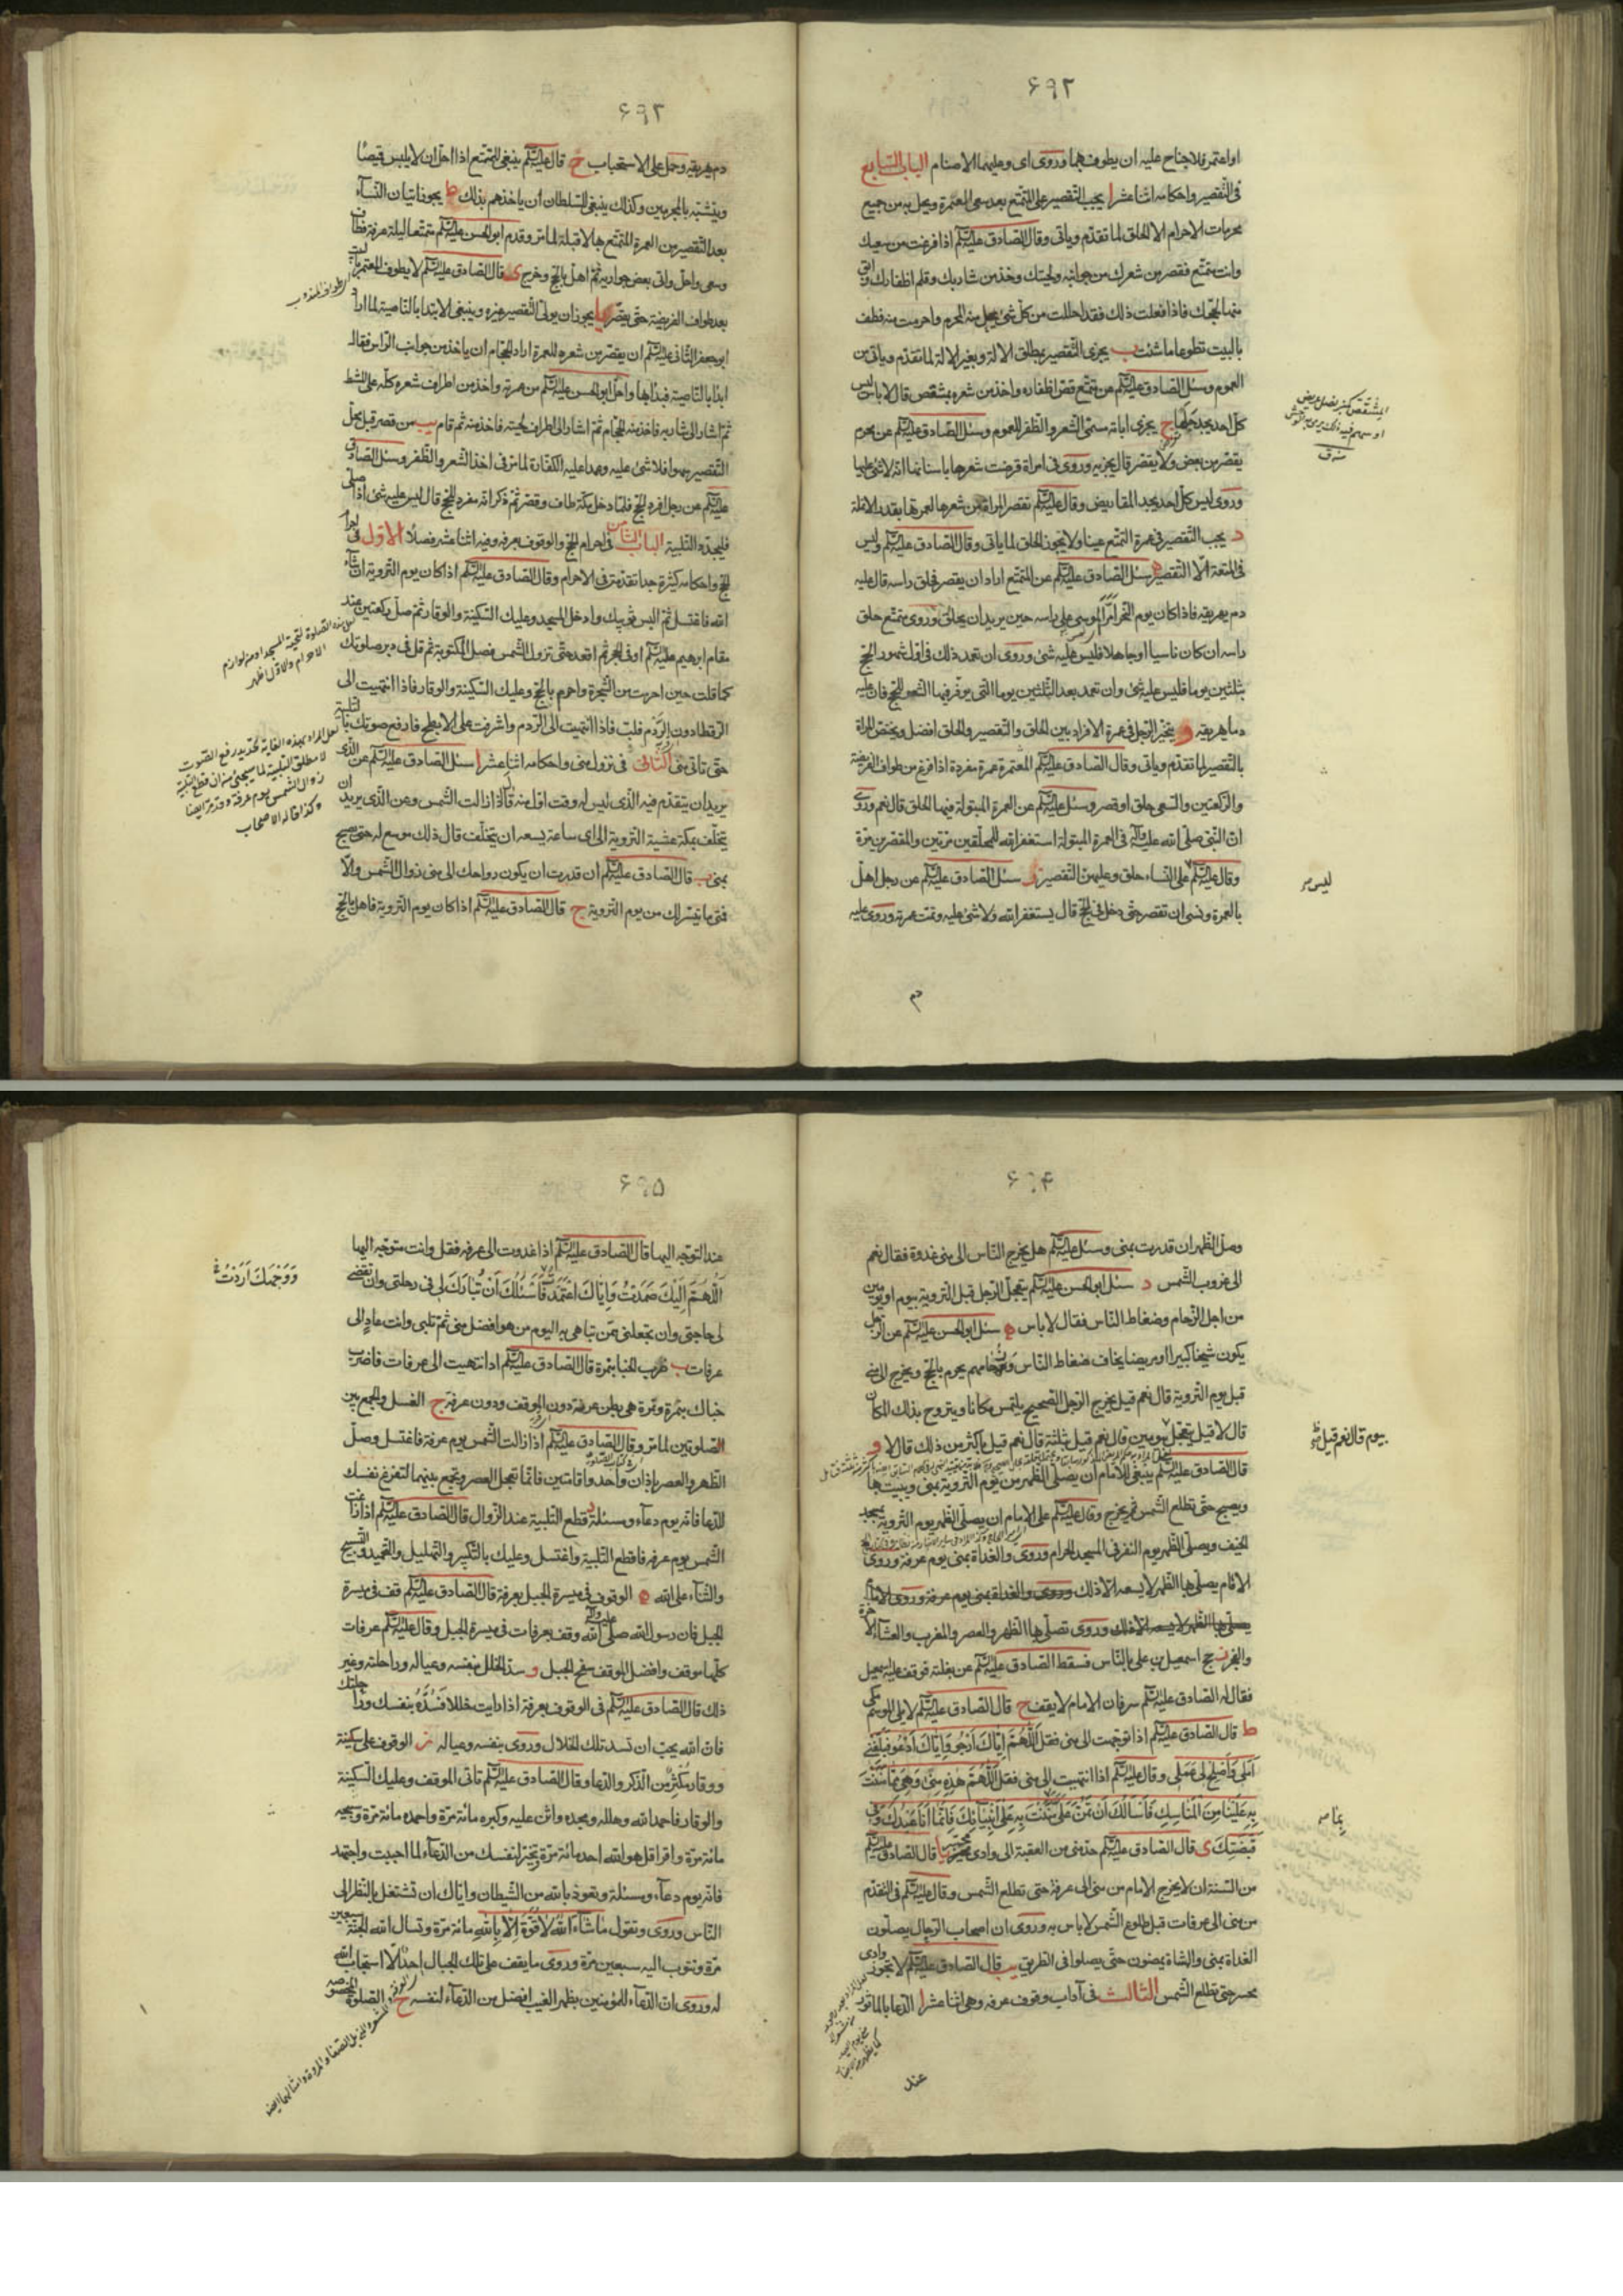 ۶۹۲
او اعتمر فلا جناح عليه ان يطوف بهما وروى اى وعليهما الاصنام الباب السابع
فى التقصير واحكامه اثنا عشر ا يجب التقصير على المتمتع بعد سعى المعتمرة ويحل به من جميع
محرمات الاحرام الا الحلق لما تقدم وياتى وقال الصادق عليه السلم اذا فرغت من سعيك
وانت متمتع فقصر من شعرك من جوانبه ولحيتك وخذ من شاربك وقلم اظفارك وابق
منها لحجك فاذا فعلت ذلك فقد احللت من كل شئ يحل منه المحرم واحرمت منه فطف
بالبيت تطوعا ما شئت ب يجزى التقصير بمطلق الالة وبغير الالة لما تقدم وياتى من
العموم وسئل الصادق عليه السلم عن متمتع قص اظفاره واخذ من شعره بمشقص قال لا باس ليس
كل احد يجد جلما ج يجزى ابانة مسمى الشعر والظفر للعموم وسئل الصادق عليه السلم عن محرم
يقصر من بعض ولا يقصر من بعض قال يجزيه وروى فى امراة قرضت شعرها باسنانها انه لا شئ عليها
وروى ليس كل احد يجد المقاريض وقال عليه السلم تقصر المراة من شعرها لعمرتها بقدر الانملة
د يجب التقصير فى عمرة التمتع عينا ولا يجوز الحلق لما ياتى وقال الصادق عليه السلم وليس
فى المتعة الا التقصير ه سئل الصادق عليه السلم عن المتمتع اراد ان يقصر فحلق راسه قال عليه
دم يهريقه فاذا كان يوم النحر امر الموسى على راسه حين يريد ان يحلق وروى متمتع حلق
راسه ان كان ناسيا او جاهلا فليس عليه شئ وروى ان تعمد ذلك فى اول شهور الحج
بثلثين يوما فليس عليه شئ وان تعمد بعد الثلثين يوما التى يوفر فيها الشعر للحج فان عليه
دما يهريقه و يتخير الرجل فى عمرة الافراد بين الحلق والتقصير والحلق افضل ويختص المراة
بالتقصير لما تقدم وياتى وقال الصادق عليه السلم المعتمر عمرة مفردة اذا فرغ من طواف الفريضة
والركعتين والسعى حلق او قصر وسئل عليه السلم عن العمرة المبتولة فيها الحلق قال نعم وروى
ان النبى صلى الله عليه وآله فى العمرة المبتولة استغفر الله للمحلقين مرتين والمقصرين مرة
وقال عليه السلم على النساء حلق وعليهن التقصير ز سئل الصادق عليه السلم عن رجل اهل
بالعمرة ونسى ان تقصر حتى دخل فى الحج قال يستغفر الله ولا شئ عليه وتمت عمرته وروى عليه
ليس صر
دم
۶۹۲
دم يهريقه وحمل على الاستحباب ح قال عليه السلم ينبغى للمتمتع اذا احل ان لا يلبس قميصا
ويتشبه بالمحرمين وكذلك ينبغى للسلطان ان ياخذهم بذلك ط يجوز اتيان النساء
بعد التقصير من العمرة المتمتع بها لا قبله لما مر وقدم ابو الحسن عليه السلم متمتعا ليلة عرفة فطاف
وسعى واحل واتى بعض جواريه ثم اهل بالحج وخرج ى قال الصادق عليه السلم لا يطوف المعتمر بالبيت
بعد طواف الفريضة حتى يقصر يا يجوز ان يولى التقصير غيره وينبغى الابتداء بالناصية لما اراد
ابو جعفر الثانى عليه السلم ان يقصر من شعره للعمرة اراد الحجام ان ياخذ من جوانب الراس فقال له
ابدا بالناصية فبدا بها واحل ابو الحسن عليه السلم من عمرته واخذ من اطراف شعره كله على المشط
ثم اشار الى شاربه فاخذ منه الحجام ثم اشار الى اطراف لحيته فاخذ منه ثم قام يب من قصر قبل محل
التقصير سهوا فلا شئ عليه وعمدا عليه الكفارة لما مر فى اخذ الشعر والظفر وسئل الصادق
عليه السلم عن رجل افرد الحج فلما دخل مكة طاف وقصر ثم ذكر انه مفرد للحج قال ليس عليه شئ اذا صلى
فليجدد التلبية الباب الثامن فى احرام الحج والوقوف بعرفة وفيه اثنا عشر فصلا الاول فى احرام
الحج واحكامه كثيرة جدا تقدمت فى الاحرام وقال الصادق عليه السلم اذا كان يوم التروية ان شاء
الله فاغتسل ثم البس ثوبيك وادخل المسجد وعليك السكينة والوقار ثم صل ركعتين عند
مقام ابرهيم عليه السلم او فى الحجر ثم اقعد حتى تزول الشمس فصل المكتوبة ثم قل فى دبر صلوتك
كما قلت حين احرمت من الشجرة واحرم بالحج وعليك السكينة والوقار فاذا انتهيت الى
الرقطا دون الردم فلب فاذا انتهيت الى الردم واشرفت على الابطح فارفع صوتك بالتلبية
حتى تاتى منى الثانى فى نزول منى واحكامه اثنا عشر ا سئل الصادق عليه السلم عن الذى
يريد ان يتقدم فيه الذى ليس له وقت اول منه قال اذا زالت الشمس وعن الذى يريد ان
يتخلف بمكة عشية التروية الى اى ساعة يسعه ان يتخلف قال ذلك موسع له حتى يصبح
بمنى ب قال الصادق عليه السلم ان قدرت ان يكون رواحك الى منى زوال الشمس والا
فمتى ما تيسر لك من يوم التروية ج قال الصادق عليه السلم اذا كان يوم التروية فاهل بالحج
لعل هذه الصلوة لتحية المسجد او من لوازم
الاحرام والاول اظهر
لعل المراد بهذه الغاية تحديد رفع الصوت
لا مطلق التلبية لما سيجئ من ان قطع التلبية
زوال الشمس يوم عرفة وقد مر ايضا
وكذا قاله الاصحاب
۶۹۴
وصل الظهر ان قدرت بمنى وسئل عليه السلم هل يخرج الناس الى منى غدوة فقال نعم
الى غروب الشمس د سئل ابو الحسن عليه السلم يتعجل الرجل قبل التروية بيوم او يومين
من اجل الزحام وضغاط الناس فقال لا باس ه سئل ابو الحسن عليه السلم عن الرجل
يكون شيخا كبيرا او مريضا يخاف ضغاط الناس وزحامهم يحرم بالحج ويخرج الى منى
قبل يوم التروية قال نعم قيل يخرج الرجل الصحيح يلتمس مكانا ويتروح بذلك المكان
قال لا قيل يتعجل بيومين قال نعم قيل بثلثة قال نعم قيل باكثر من ذلك قال لا و
قال الصادق عليه السلم ينبغى للامام ان يصلى الظهر من يوم التروية بمنى ويبيت بها
ويصبح حتى تطلع الشمس ثم يخرج وقال عليه السلم على الامام ان يصلى الظهر يوم التروية بمسجد
الخيف ويصلى الظهر يوم النفر فى المسجد الحرام وروى والغداة بمنى يوم عرفة وروى
الامام يصلى بها الظهر لا يسعه الا ذلك وروى والغداة بمنى يوم عرفة وروى الامام
يصلى بها الظهر لا يسعه الا ذلك وروى تصلى بها الظهر والعصر والمغرب والعشاء الاخرة
والفجر ز حج اسمعيل بن على بالناس فسقط الصادق عليه السلم عن بغلته فوقف عليه اسمعيل
فقال له الصادق عليه السلم سر فان الامام لا يقف ح قال الصادق عليه السلم لا يلى الموسم مكى
ط قال الصادق عليه السلم اذا توجهت الى منى فقل اللهم اياك ارجو واياك ادعو فبلغنى
املى واصلح لى عملى وقال عليه السلم اذا انتهيت الى منى فقل اللهم هذه منى وهى مما مننت
به علينا من المناسك فاسالك ان تمن على بما مننت به على انبيائك فانما انا عبدك وفى
قبضتك ى قال الصادق عليه السلم حد منى من العقبة الى وادى محسر يا قال الصادق عليه السلم
من السنة ان لا يخرج الامام من منى الى عرفة حتى تطلع الشمس وقال عليه السلم فى التقدم
من منى الى عرفات قبل طلوع الشمس لا باس به وروى ان اصحاب الرجال يصلون
الغداة بمنى والمشاة يمضون حتى يصلوا فى الطريق يب قال الصادق عليه السلم لا تجوز وادى
محسر حتى تطلع الشمس الثالث فى آداب وقوف عرفة وهى اثنا عشر ا الدعا بالماثور
بيوم قال نعم قيل
بما صر
عند
۶۹۵
عند التوجه اليها قال الصادق عليه السلم اذا غدوت الى عرفة فقل وانت متوجه اليها
اللهم اليك صمدت واياك اعتمدت فاسئلك ان تبارك لى فى رحلتى وان تقضى
لى حاجتى وان تجعلنى ممن تباهى به اليوم من هو افضل منى ثم تلبى وانت غاد الى
عرفات ب ضرب الخبا بنمرة قال الصادق عليه السلم اذا انتهيت الى عرفات فاضرب
خباك بنمرة ونمرة هى بطن عرنة دون الموقف ودون عرفة ج الغسل والجمع بين
الصلوتين لما مر وقال الصادق عليه السلم اذا زالت الشمس يوم عرفة فاغتسل وصل
الظهر والعصر باذان واحد واقامتين فانما تعجل العصر وتجمع بينهما لتفرغ نفسك
للدعا فانه يوم دعاء ومسئلة د قطع التلبية عند الزوال قال الصادق عليه السلم اذا زاغت
الشمس يوم عرفة فاقطع التلبية واغتسل وعليك بالتكبير والتهليل والتحميد والتسبيح
والثناء على الله ه الوقوف فى ميسرة الجبل بعرفة قال الصادق عليه السلم قف فى ميسرة
الجبل فان رسول الله صلى الله عليه وآله وقف بعرفات فى ميسرة الجبل وقال عليه السلم عرفات
كلها موقف وافضل الموقف سفح الجبل و سد الخلل بنفسه وعياله وراحلته وغير
ذلك قال الصادق عليه السلم فى الوقوف بعرفة اذا رايت خللا فسده بنفسك وراحلتك
فان الله يحب ان تسد تلك الخلال وروى بنفسه وعياله ز الوقوف على سكينة
ووقار مكثرا من الذكر والدعا وقال الصادق عليه السلم تاتى الموقف وعليك السكينة
والوقار فاحمد الله وهلله ومجده واثن عليه وكبره مائة مرة واحمده مائة مرة وسبحه
مائة مرة واقرا قل هو الله احد مائة مرة وتخير لنفسك من الدعاء لما احببت واجتهد
فانه يوم دعاء ومسئلة وتعوذ بالله من الشيطان واياك ان تشتغل بالنظر الى
الناس وروى وتقول ما شاء الله لا قوة الا بالله مائة مرة وتسال الله الجنة سبعين
مرة وتتوب اليه سبعين مرة وروى ما يقف على تلك الجبال احد الا استجاب الله
له وروى ان الدعاء للمؤمنين بظهر الغيب افضل من الدعاء لنفسه ح الصلوة المخصوصة
ووجهك اردت